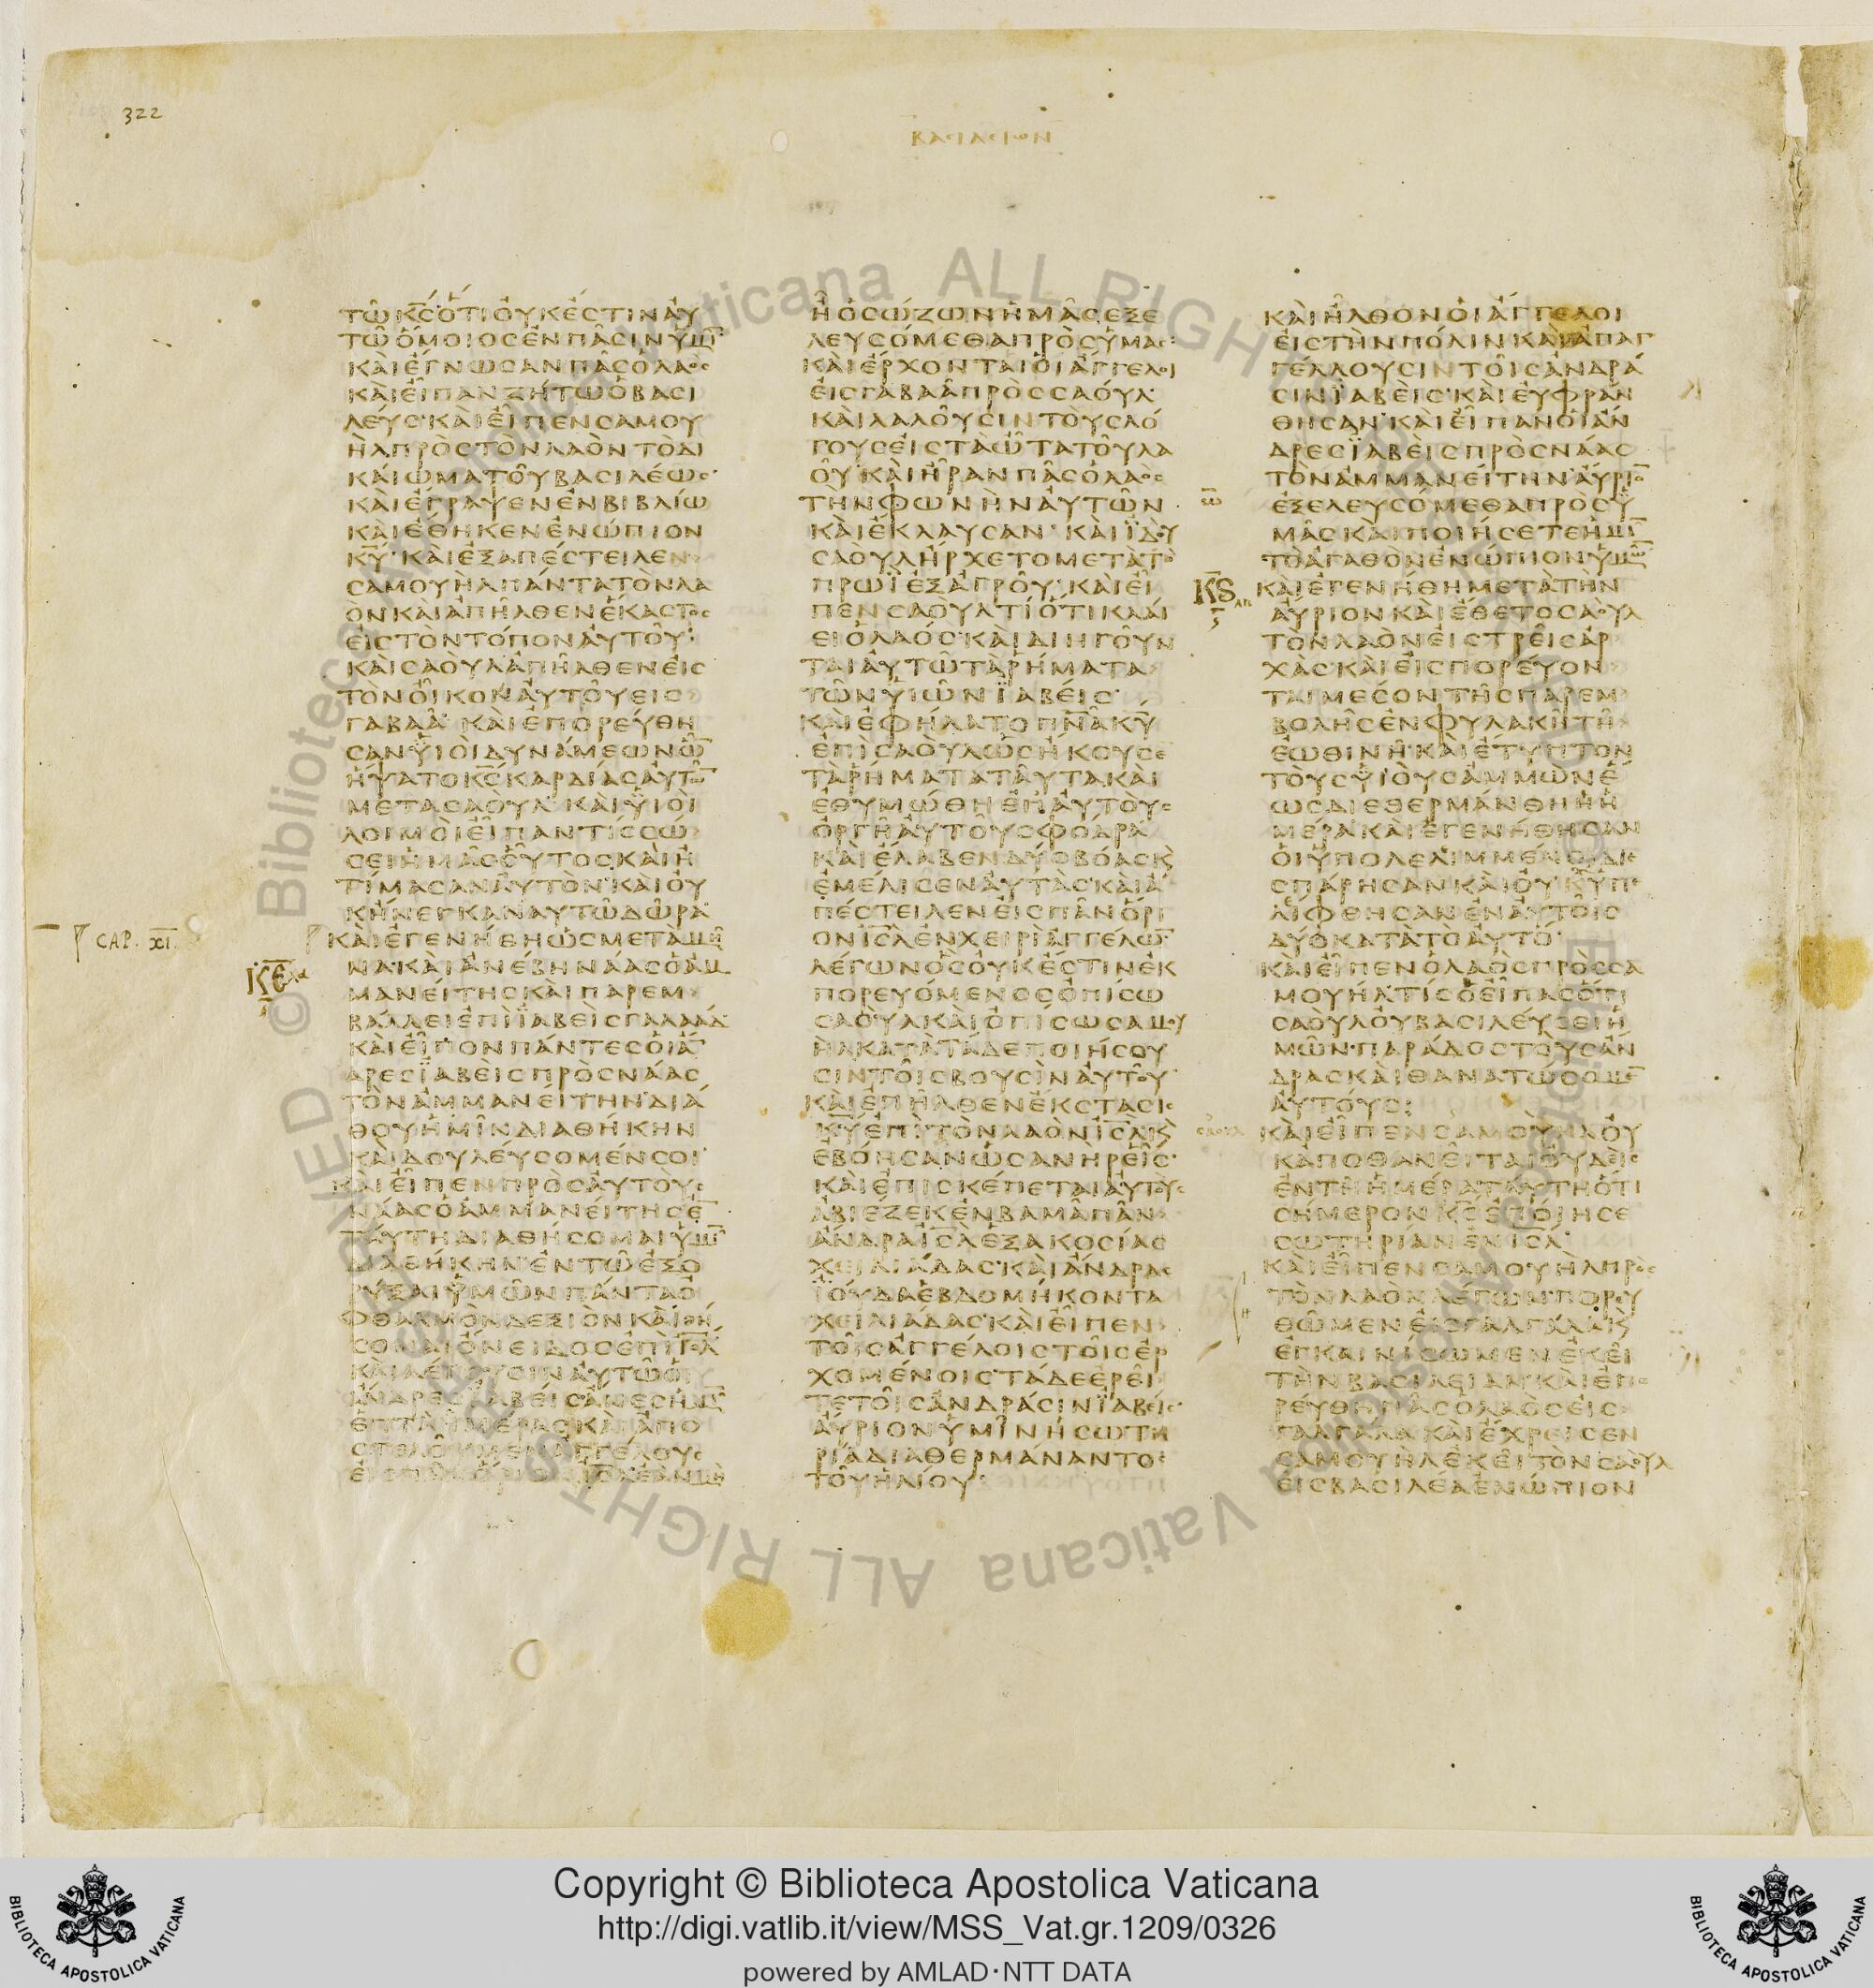 322
ΒΑΣΙΛΕΙΩΝ
ΤΩΚΣΟΤΙΟΥΚΕΣΤΙΝΑΥ
ΤΩΟΜΟΙΟΣΕΝΠΑΣΙΝΥΜΙ̅
ΚΑΙΕΓΝΩΣΑΝΠΑΣΟΛΑΟΣ
ΚΑΙΕΙΠΑΝΖΗΤΩΟΒΑΣΙ
ΛΕΥΣ·ΚΑΙΕΙΠΕΝΣΑΜΟΥ
ΗΛΠΡΟΣΤΟΝΛΑΟΝΤΟΔΙ
ΚΑΙΩΜΑΤΟΥΒΑΣΙΛΕΩΣ·
ΚΑΙΕΓΡΑΨΕΝΕΝΒΙΒΛΙΩ
ΚΑΙΕΘΗΚΕΝΕΝΩΠΙΟΝ
ΚΥ̅·ΚΑΙΕΞΑΠΕΣΤΕΙΛΕΝ
ΣΑΜΟΥΗΛΠΑΝΤΑΤΟΝΛΑ
ΟΝΚΑΙΑΠΗΛΘΕΝΕΚΑΣΤΟΣ
ΕΙΣΤΟΝΤΟΠΟΝΑΥΤΟΥ·
ΚΑΙΣΑΟΥΛΑΠΗΛΘΕΝΕΙΣ
ΤΟΝΟΙΚΟΝΑΥΤΟΥΕΙΣ
ΓΑΒΑΑ·ΚΑΙΕΠΟΡΕΥΘΗ
ΣΑΝΥΙΟΙΔΥΝΑΜΕΩΝΩ̅
ΗΨΑΤΟΚΣ̅ΚΑΡΔΙΑΣΑΥΤΩ̅
ΜΕΤΑΣΑΟΥΛ·ΚΑΙΥΙΟΙ
ΛΟΙΜΟΙΕΙΠΑΝΤΙΣΣΩ
ΣΕΙΗΜΑΣΟΥΤΟΣ·ΚΑΙΗ
ΤΙΜΑΣΑΝΑΥΤΟΝ·ΚΑΙΟΥ
ΚΗΝΕΓΚΑΝΑΥΤΩΔΩΡΑ
CAP. XI.
ΚΑΙΕΓΕΝΗΘΗΩΣΜΕΤΑΜΗ
ΝΑ·ΚΑΙΑΝΕΒΗΝΑΑΣΟΑΜ
ΚΕ̅
ΜΑΝΕΙΤΗΣΚΑΙΠΑΡΕΜ
ΒΑΛΛΕΙΕΠΙΪΑΒΕΙΣΓΑΛΑΑΔ·
ΚΑΙΕΙΠΟΝΠΑΝΤΕΣΟΙΑ̅
ΔΡΕΣΪΑΒΕΙΣΠΡΟΣΝΑΑΣ
ΤΟΝΑΜΜΑΝΕΙΤΗΝ·ΔΙΑ
ΘΟΥΗΜΙΝΔΙΑΘΗΚΗΝ
ΚΑΙΔΟΥΛΕΥΣΟΜΕΝΣΟΙ·
ΚΑΙΕΙΠΕΝΠΡΟΣΑΥΤΟΥΣ
ΝΑΑΣΟΑΜΜΑΝΕΙΤΗΣΕ̅
ΤΑΥΤΗΔΙΑΘΗΣΟΜΑΙΥΜΙ̅
ΔΙΑΘΗΚΗΝ·ΕΝΤΩΕΞΟ
ΡΥΞΑΙΥΜΩΝΠΑΝΤΑΟ
ΦΘΑΛΜΟΝΔΕΞΙΟΝΚΑΙΘΗ
ΣΟΜΑΙΟΝΕΙΔΟΣΕΠΙΙΣ̅Λ
ΚΑΙΛΕΓΟΥΣΙΝΑΥΤΩΟΙ
ΑΝΔΡΕΣΪΑΒΕΙΣΑΝΕΣΗΜΙ̅
ΕΠΤΑΗΜΕΡΑΣΚΑΙΑΠΟ
ΣΤΕΛΟΥΜΕΝΑΓΓΕΛΟΥΣ
ΕΙΣΠΑΝΟΡΙΟΝΙΣ̅Λ·ΕΑΝΜΗ
ΗΟΣΩΖΩΝΗΜΑΣΕΞΕ
ΛΕΥΣΟΜΕΘΑΠΡΟΣΥΜΑΣ·
ΚΑΙΕΡΧΟΝΤΑΙΟΙΑΓΓΕΛΟΙ
ΕΙΣΓΑΒΑΑΠΡΟΣΣΑΟΥΛ·
ΚΑΙΛΑΛΟΥΣΙΝΤΟΥΣΛΟ
ΓΟΥΣΕΙΣΤΑΩΤΑΤΟΥΛΑ
ΟΥ·ΚΑΙΗΡΑΝΠΑΣΟΛΑΟΣ
ΤΗΝΦΩΝΗΝΑΥΤΩΝ
ΚΑΙΕΚΛΑΥΣΑΝ·ΚΑΙΪΔΟΥ
ΣΑΟΥΛΗΡΧΕΤΟΜΕΤΑΤΟ
ΠΡΩΪΕΞΑΓΡΟΥ·ΚΑΙΕΙ
ΠΕΝΣΑΟΥΛΤΙΟΤΙΚΛΑΙ
ΕΙΟΛΑΟΣ·ΚΑΙΔΙΗΓΟΥΝ
ΤΑΙΑΥΤΩΤΑΡΗΜΑΤΑ
ΤΩΝΥΙΩΝΪΑΒΕΙΣ·
ΚΑΙΕΦΗΛΑΤΟΠΝ̅ΑΚΥ̅
ΕΠΙΣΑΟΥΛΩΣΗΚΟΥΣΕ
ΤΑΡΗΜΑΤΑΤΑΥΤΑΚΑΙ
ΕΘΥΜΩΘΗΕΠΑΥΤΟΥΣ
ΟΡΓΗΑΥΤΟΥΣΦΟΔΡΑ
ΚΑΙΕΛΑΒΕΝΔΥΟΒΟΑΣΚ
ΕΜΕΛΙΣΕΝΑΥΤΑΣ·ΚΑΙΑ
ΠΕΣΤΕΙΛΕΝΕΙΣΠΑΝΟΡΙ
ΟΝΙΣ̅ΛΕΝΧΕΙΡΙΑΓΓΕΛΩ̅·
ΛΕΓΩΝΟΣΟΥΚΕΣΤΙΝΕΚ
ΠΟΡΕΥΟΜΕΝΟΣΟΠΙΣΩ
ΣΑΟΥΛΚΑΙΟΠΙΣΩΣΑΜΟΥ
ΗΛΚΑΤΑΤΑΔΕΠΟΙΗΣΟΥ
ΣΙΝΤΟΙΣΒΟΥΣΙΝΑΥΤΟΥ·
ΚΑΙΕΠΗΛΘΕΝΕΚΣΤΑΣΙΣ
ΚΥ̅ΕΠΙΤΟΝΛΑΟΝΙΣ̅ΛΚ
ΕΒΟΗΣΑΝΩΣΑΝΗΡΕΙΣ·
ΚΑΙΕΠΙΣΚΕΠΕΤΑΙΑΥΤΟΥΣ
ΑΒΙΕΖΕΚΕΝΒΑΜΑΠΑΝ
ΑΝΔΡΑΙΣ̅ΛΕΞΑΚΟΣΙΑΣ
ΧΕΙΛΙΑΔΑΣ·ΚΑΙΑΝΔΡΑΣ
ΪΟΥΔΑΕΒΔΟΜΗΚΟΝΤΑ
ΧΕΙΛΙΑΔΑΣ·ΚΑΙΕΙΠΕΝ
ΤΟΙΣΑΓΓΕΛΟΙΣΤΟΙΣΕΡ
ΧΟΜΕΝΟΙΣ·ΤΑΔΕΕΡΕΙ
ΤΕΤΟΙΣΑΝΔΡΑΣΙΝΪΑΒΕΙΣ·
ΑΥΡΙΟΝΥΜΙΝΗΣΩΤΗ
ΡΙΑΔΙΑΘΕΡΜΑΝΑΝΤΟΣ
ΤΟΥΗΛΙΟΥ·
ΚΑΙΗΛΘΟΝΟΙΑΓΓΕΛΟΙ
ΕΙΣΤΗΝΠΟΛΙΝΚΑΙΑΠΑΓ
ΓΕΛΛΟΥΣΙΝΤΟΙΣΑΝΔΡΑ
ΣΙΝΪΑΒΕΙΣ·ΚΑΙΕΥΦΡΑΝ
ΘΗΣΑΝ·ΚΑΙΕΙΠΑΝΟΙΑΝ
ΔΡΕΣΪΑΒΕΙΣΠΡΟΣΝΑΑΣ
ΤΟΝΑΜΜΑΝΕΙΤΗΝ·ΑΥΡΙΟ̅
ΕΞΕΛΕΥΣΟΜΕΘΑΠΡΟΣΥ
ΜΑΣΚΑΙΠΟΙΗΣΕΤΕΗΜΙ̅
ΤΟΑΓΑΘΟΝΕΝΩΠΙΟΝΥΜΩ̅
ΚϚ̅
ΚΑΙΕΓΕΝΗΘΗΜΕΤΑΤΗΝ
ΑΥΡΙΟΝΚΑΙΕΘΕΤΟΣΑΟΥΛ
ΤΟΝΛΑΟΝΕΙΣΤΡΕΙΣΑΡ
ΧΑΣ·ΚΑΙΕΙΣΠΟΡΕΥΟΝ
ΤΑΙΜΕΣΟΝΤΗΣΠΑΡΕΜ
ΒΟΛΗΣΕΝΦΥΛΑΚΗΤΗ
ΕΩΘΙΝΗ·ΚΑΙΕΤΥΠΤΟΝ
ΤΟΥΣΥΙΟΥΣΑΜΜΩΝΕ
ΩΣΔΙΕΘΕΡΜΑΝΘΗΗΗ
ΜΕΡΑ·ΚΑΙΕΓΕΝΗΘΗΣΑΝ
ΟΙΥΠΟΛΕΛΙΜΜΕΝΟΙΔΙΕ
ΣΠΑΡΗΣΑΝΚΑΙΟΥΧΥΠΕ
ΛΙΦΘΗΣΑΝΕΝΑΥΤΟΙΣ
ΔΥΟΚΑΤΑΤΟΑΥΤΟ·
ΚΑΙΕΙΠΕΝΟΛΑΟΣΠΡΟΣΣΑ
ΜΟΥΗΛΤΙΣΟΕΙΠΑΣΟΤΙ
ΣΑΟΥΛΟΥΒΑΣΙΛΕΥΣΕΙΗ
ΜΩΝ·ΠΑΡΑΔΟΣΤΟΥΣΑΝ
ΔΡΑΣΚΑΙΘΑΝΑΤΩΣΟΜΕ̅
ΑΥΤΟΥΣ:
ΚΑΙΕΙΠΕΝΣΑΜΟΥΗΛΟΥ
ΚΑΠΟΘΑΝΕΙΤΑΙΟΥΔΕΙΣ
ΕΝΤΗΗΜΕΡΑΤΑΥΤΗΟΤΙ
ΣΗΜΕΡΟΝΚΣ̅ΕΠΟΙΗΣΕ
ΣΩΤΗΡΙΑΝΕΝΙΣ̅Λ·
ΚΑΙΕΙΠΕΝΣΑΜΟΥΗΛΠΡΟΣ
ΤΟΝΛΑΟΝΛΕΓΩΝ·ΠΟΡΕΥ
ΘΩΜΕΝΕΙΣΓΑΛΓΑΛΑΚ
ΕΓΚΑΙΝΙΣΩΜΕΝΕΚΕΙ
ΤΗΝΒΑΣΙΛΕΙΑΝ·ΚΑΙΕΠΟ
ΡΕΥΘΗΠΑΣΟΛΑΟΣΕΙΣ
ΓΑΛΓΑΛΑΚΑΙΕΧΡΕΙΣΕΝ
ΣΑΜΟΥΗΛΕΚΕΙΤΟΝΣΑΟΥΛ
ΕΙΣΒΑΣΙΛΕΑΕΝΩΠΙΟΝ
Copyright © Biblioteca Apostolica Vaticana
http://digi.vatlib.it/view/MSS_Vat.gr.1209/0326
powered by AMLAD·NTT DATA
BIBLIOTECA APOSTOLICA VATICANA
BIBLIOTECA APOSTOLICA VATICANA